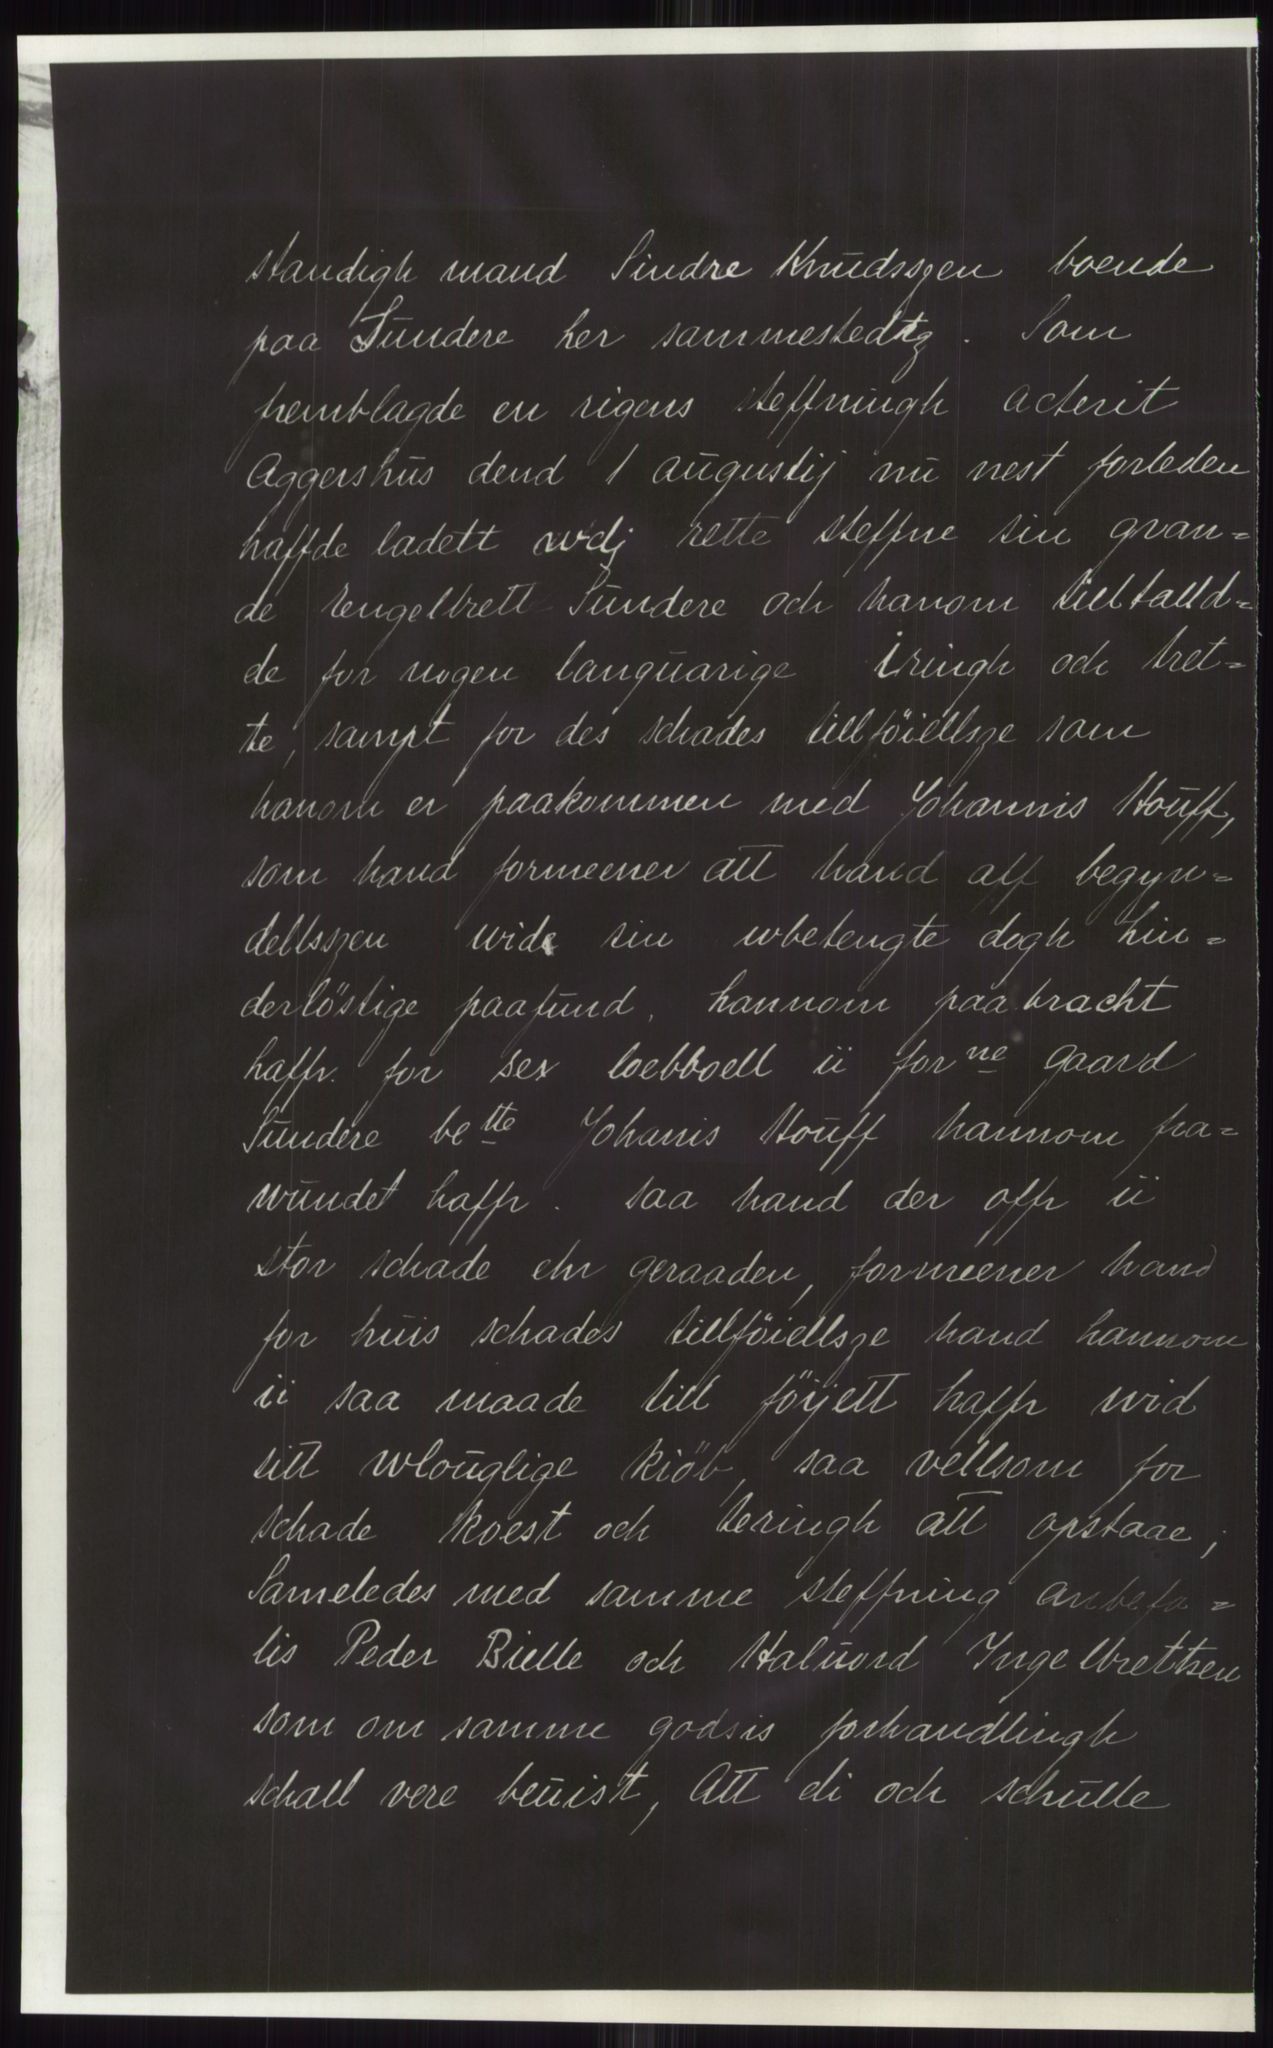 standigh mand Sindre Knudsszen boende
paa Sundere her sammestedtz. Som
fremblagde en rigens steffningh acterit
Aggershus dend 1 augustij nu nest forleden
haffde ladett widj rette steffne sin gran=
de Rengelbrett Sundere och hanom tilltalld=
de for nogen languarige iringh och tret=
te, sampt for des schades tillföiellsze som
hanom er paakommen med Johannis Houff,
som hand formeener att hand aff begyn=
dellsszen wide sin wbetengte dogh hin=
derlöstige paafund, hannom paabracht
haffr. for sex loebboell ii forne gaard
Sundere bette Johanis Houff hannom fra=
wundet haffr. saa hand der offr ii
stor schade ehr geraaden, formeener hand
for huis schades tillföiellsze hand hannom
ii saa maade till föijett haffr wid
sitt wlouglige kiöb, saa vellsom for
schade koest och teringh att opstaae;
Sameledes med samme steffning anbefa=
lis Peder Bielle och Haluord Ingelbrettsen
som om samme godsis forhandlingh
schall vere beuist, Att di och schulle